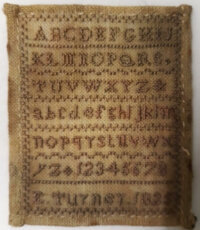 ABCDEFGHIJ
KLMNOPQRS
TUVWXYZ&
abcdefghijklm
nopqrstuvwx
yz 12345678
E. Turner. 1833